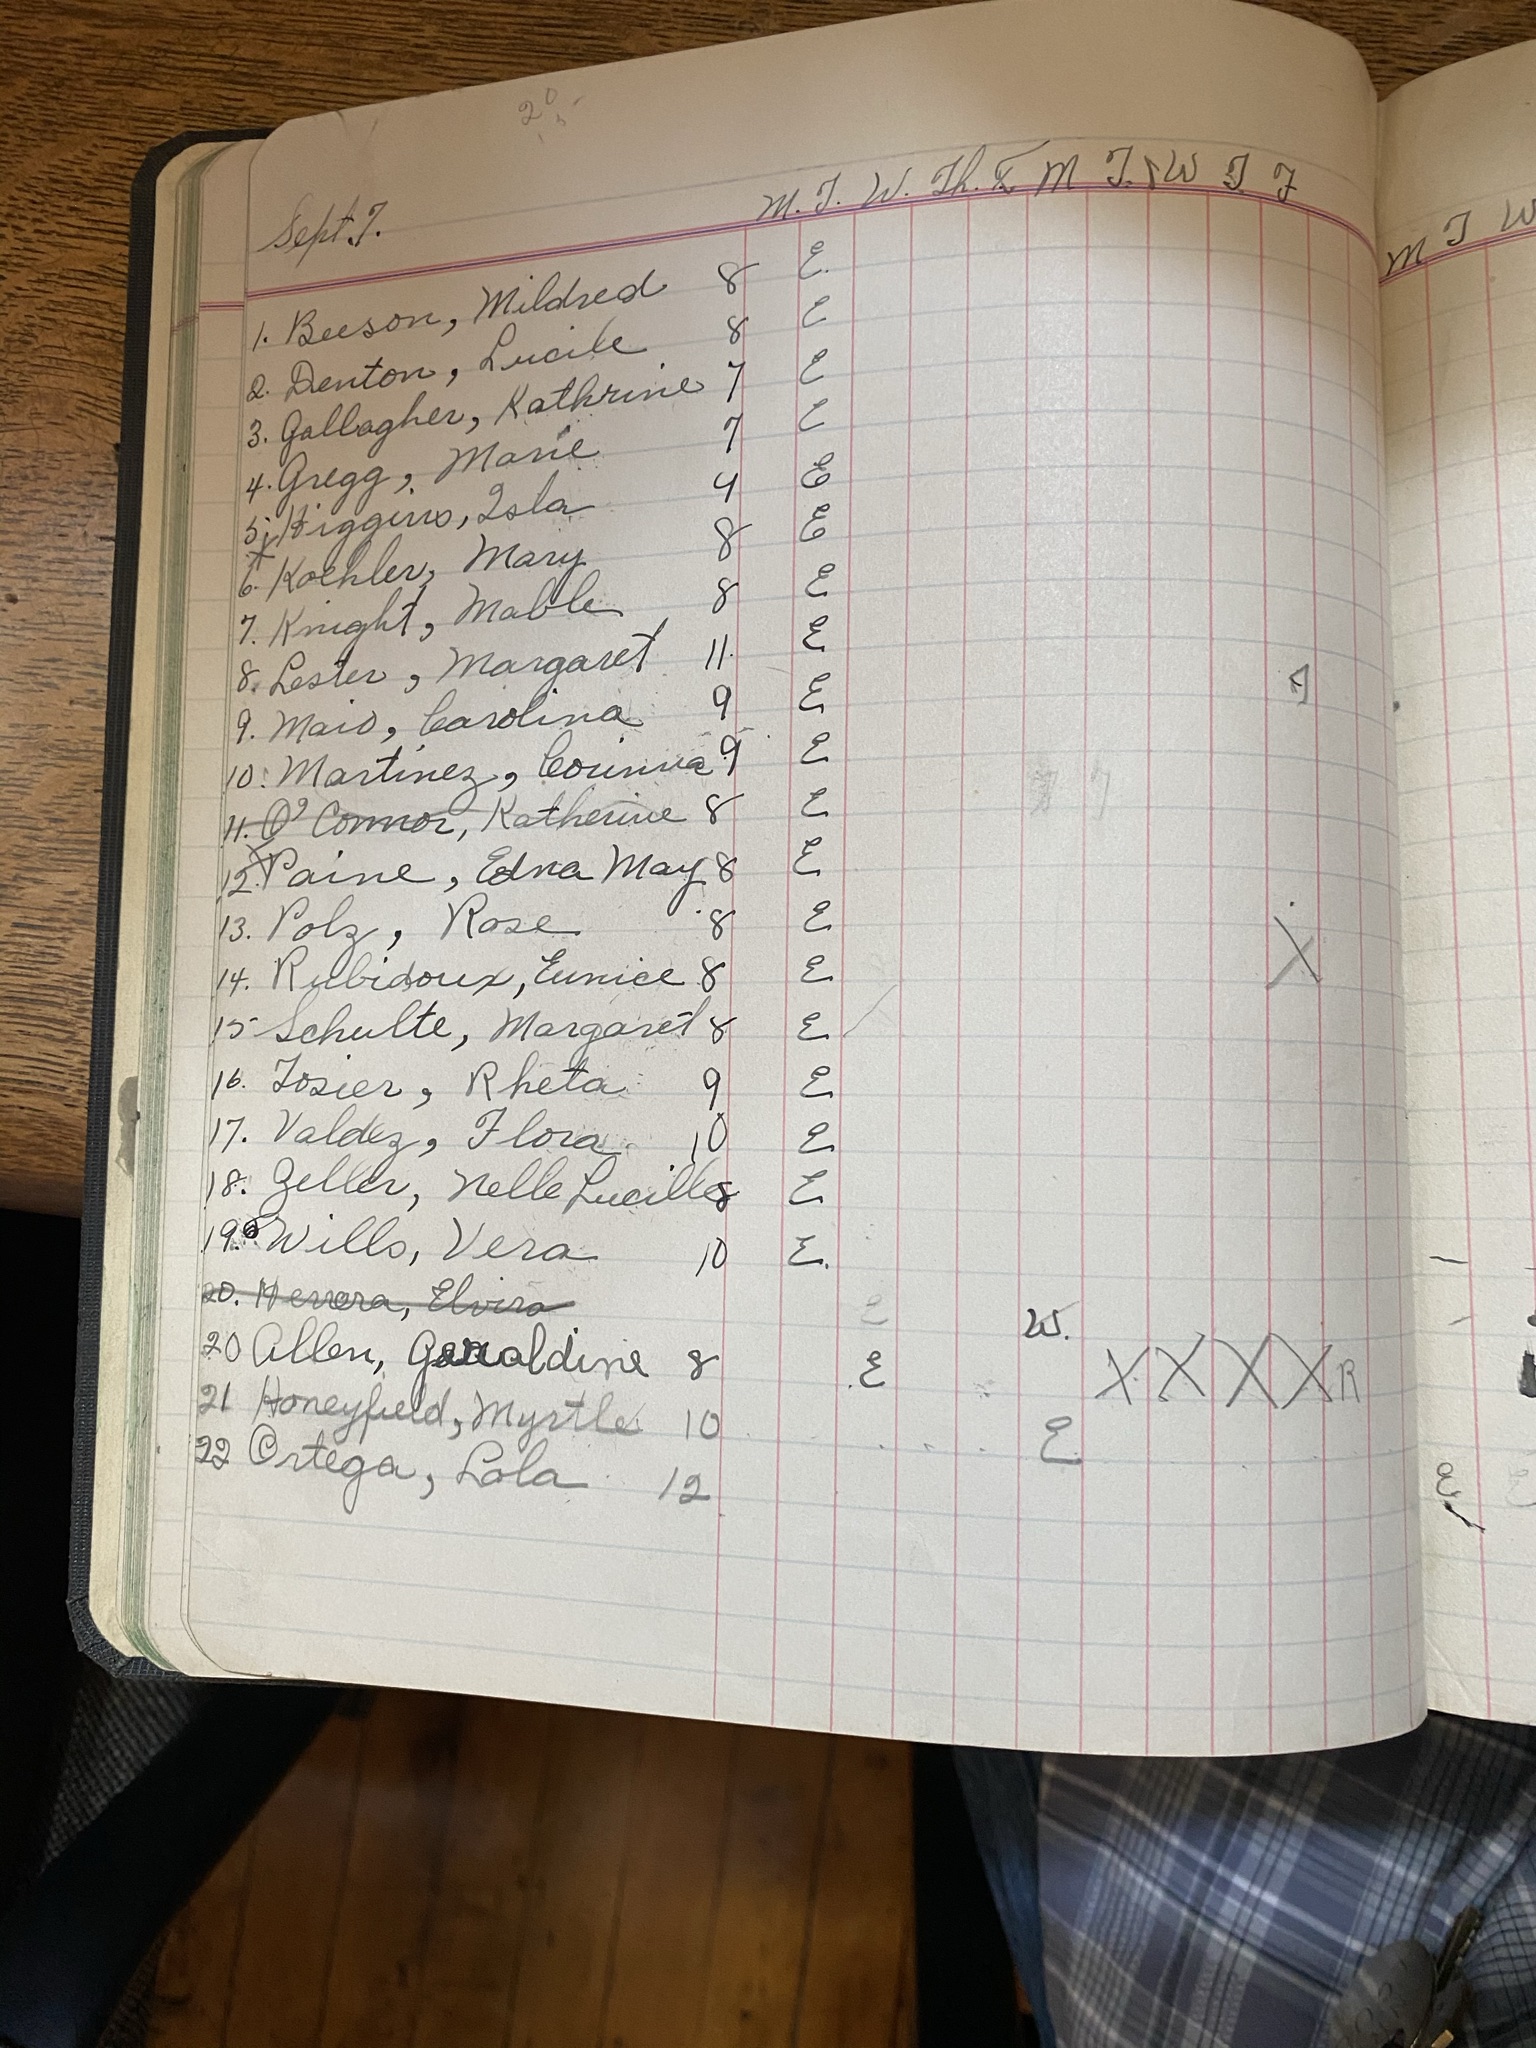 20
Sept. 7.
M. T. W. Th. F. M T. W T F
M T W
1. Beeson, Mildred 8 E
2. Denton, Lucile 8 E
3. Gallagher, Kathrine 7 E
4. Gregg, Marie 7 E
5. Higgins, Isla 4 E
6. Koehler, Mary 8 E
7. Knight, Mable 8 E
8. Lester, Margaret 11 E
9. Maio, Carolina 9 E
10. Martinez, Corinna 9 E
11. O'Connor, Katherine 8 E
12. Paine, Edna May 8 E
13. Polz, Rose 8 E
14. Rubidoux, Eunice 8 E X
15 Schulte, Margaret 8 E
16. Tosier, Rheta 9 E
17. Valdez, Flora 10 E
18. Zeller, Nelle Lucille 8 E
19. Wills, Vera 10 E.
20. Herrera, Elvira E W.
20 Allen, Geraldine 8 E X X X X R
21 Honeyfield, Myrtle 10 E
22 Ortega, Lola 12 E E